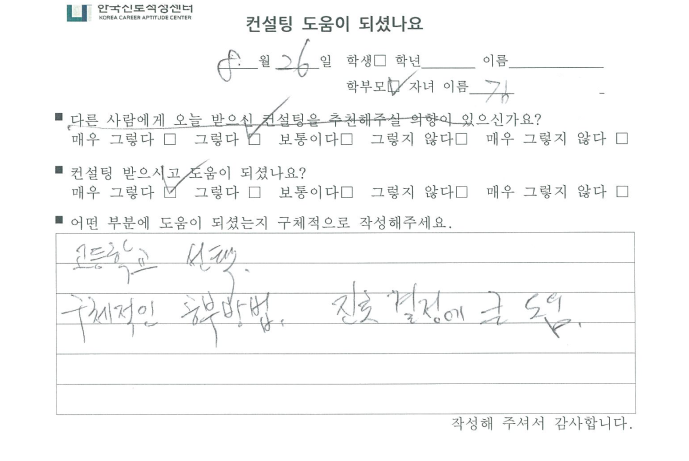 한국진로적성센터
KOREA CAREER APTITUDE CENTER
컨설팅 도움이 되셨나요
8. 월 26 일 학생□ 학년 이름
학부모☑ 자녀 이름 김
■ 다른 사람에게 오늘 받으신 컨설팅을 추천해주실 의향이 있으신가요?
매우 그렇다 □ 그렇다 ☑ 보통이다□ 그렇지 않다□ 매우 그렇지 않다 □
■ 컨설팅 받으시고 도움이 되셨나요?
매우 그렇다 ☑ 그렇다 □ 보통이다□ 그렇지 않다□ 매우 그렇지 않다 □
■ 어떤 부분에 도움이 되셨는지 구체적으로 작성해주세요.
고등학교 선택.
구체적인 공부방법. 진로 결정에 큰 도움.
작성해 주셔서 감사합니다.